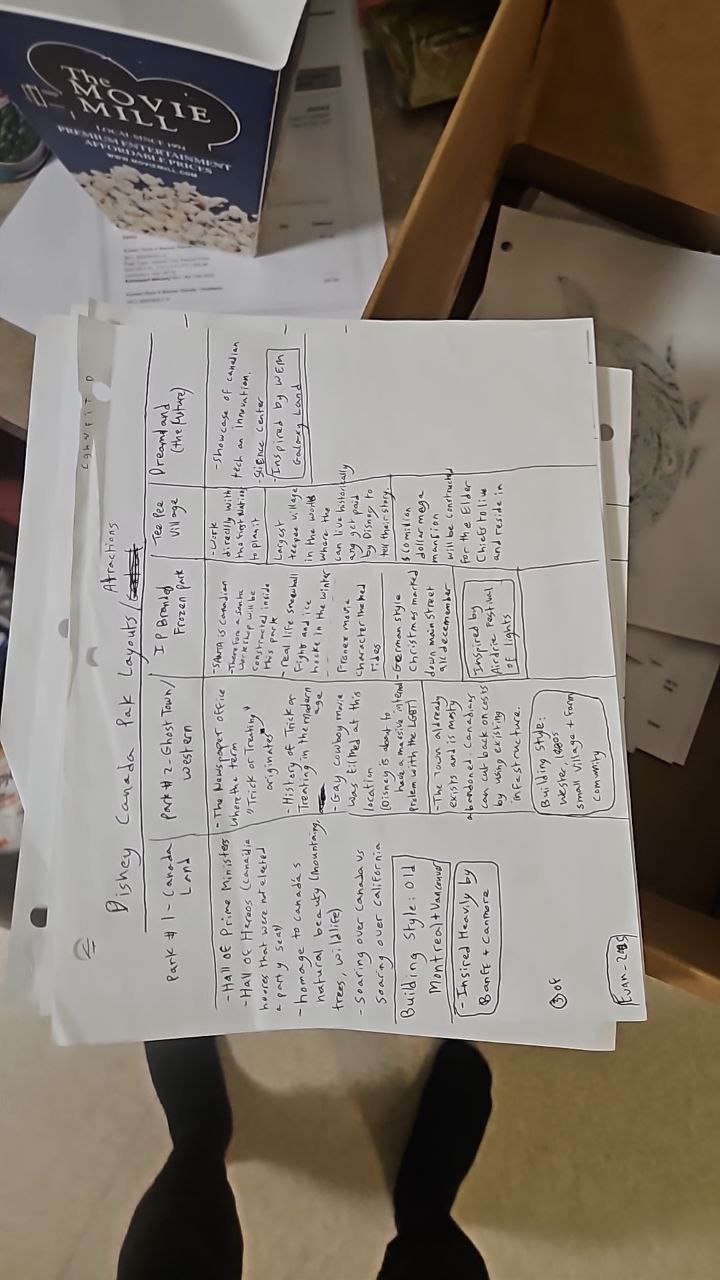 The
MOVIE
MILL
LOCAL SINCE 1994
PREMIUM ENTERTAINMENT
AFFORDABLE PRICES
WWW.MOVIEMILL.COM
Disney Canada Pak Layouts/
Attractions
Park # 1 - Canada
Land
- Hall of Prime Ministers
- Hall of Heroes (Canadia
hoores that were not elected
a party seat)
- homage to Canada's
natural beauty (mountains,
trees, wildlife)
- Soaring over Canada vs
Soaring over California
Building Style: Old
Montreal + Vancouver
- Insired Heavily by
Banff + Canmore
Park # 2 - Ghost Town/
Western
- The Newspaper office
where the term
"Trick or Treating"
originates
- History of Trick or
Treating in the modern
age
- Gay cowboy movie
was filmed at this
location
(Disney is about to
have a massive internal
prolem with the LGBT)
- The Town already
exists and is mosty
abandoned: Canadians
can cut back on costs
by using existing
infastructure.
Building Style:
Wester,
small village + farm
community
IP Brand
Frozen Park
- SANTA is canadian
- Therefore a santa
workshop will be
constructed inside
this park
- real life snowball
fight and ice
hocke in the winter
Fronex movie
character themed
rides
- German style
Christmas marked
down mainstreet
all december
Inspired by
Airdrie Festival
of lights
Tee Pee
Village
- Work
directly with
the first Nation
to plan it
Largest
teepee village
in the world
where the
can live historically
and get paid
by Disney to
tell their story.
dollar mega
mansion
will be constructed
for the Elder
Chiefs to live
and reside in
Dreamland
(the future)
- Showcase of canadian
tech an Innovation.
- Science center
- Inspired by WEM
Galaxy Land
③ of